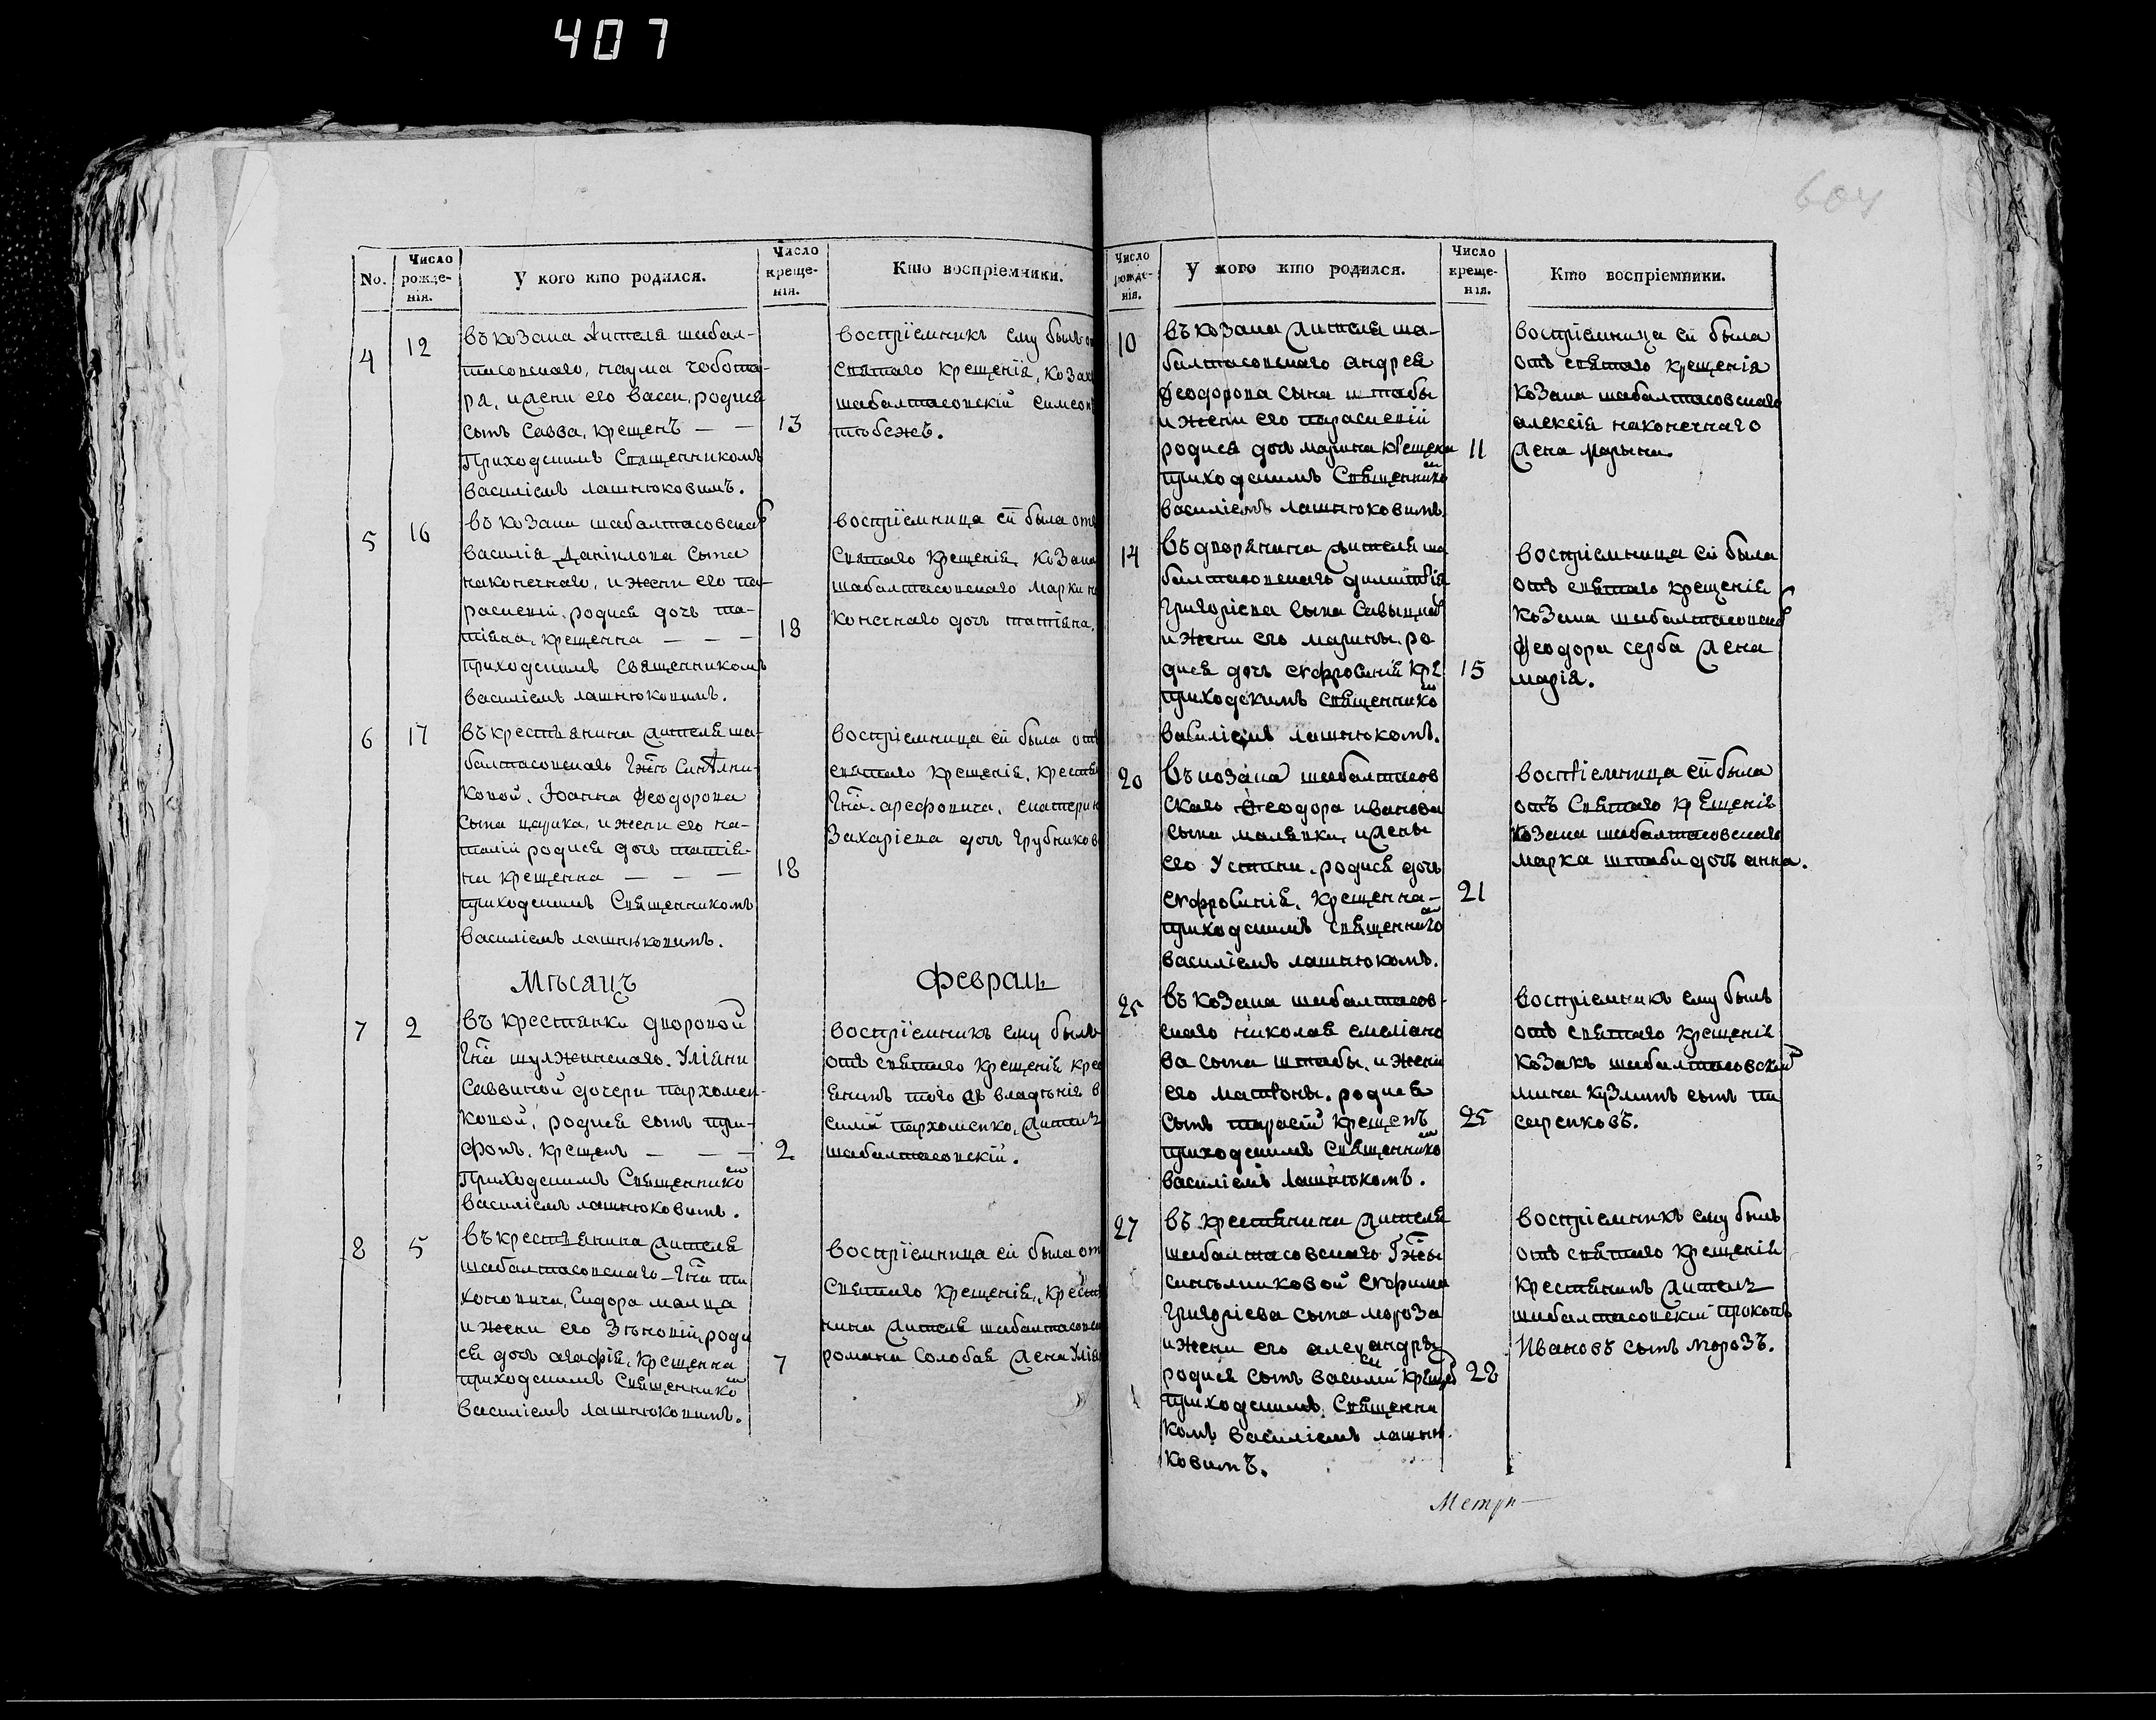 407
604
No.
Число рожде-нія.
У кого кто родился.
Число креще-нія.
Кто воспріемники.
4
12
въ козака жителя шабал-
тасовскаго, наума чобота-
ря, и жени его васси, родися
сынъ Савва, крещенъ — —
13
Приходскимъ Священникомъ
василіемъ лашнюковимъ.
воспріемникъ ему былъ от
святаго крещенія, козак
шабалтасовскій симеон
тюбежъ.
5
16
въ козака шабалтасовскаг
василія данілова сына
наконечнаго, и жени его па-
раскевіи, родися дочь та-
тіяна, крещенна — — —
18
приходскимъ священникомъ
василіемъ лашнюковимъ.
воспріемница ей была отъ
Святаго крещенія, козака
шабалтасовскаго марки на
конечнаго дочь татіяна.
6
17
въ крестьянина жителя ша-
балтасовскаго Гжи Синѣлни-
ковой, Іоанна Феодорова
сына цацика, и жени его на-
талій родися дочь татія-
на крещенна — — —
18
приходскимъ Священникомъ
василіемъ лашнюковимъ.
воспріемница ей была отъ
святаго крещенія, крестья
Гна. арефовича, екатерин
Захаріева дочь Грубников
Мѣсяцъ Февраль
7
2
въ крестянки дворовой
Гна шулжинскаго, Уліяни
Саввиной дочери пархомен-
ковой, родися сынъ три-
фонъ, крещенъ — — —
2
Приходскимъ Священнико
василіемъ лашнюковимъ.
воспріемникъ ему былъ
отъ святаго крещенія крес
янинъ того жъ владѣнія ва
силій пархоменко, житель
шабалтасовскій.
8
5
въ крестьянина жителя
шабалтасовскаго Гна ти
хоновича, Сидора малца
и жени его Зѣновіи, роди
ся дочь агафія, крещенна
7
приходскимъ Священнико
василіемъ лашнюковимъ.
воспріемница ей была от
Святаго крещенія, крестья
нина жителя шабалтасовск
романа Солобая жена Улія
Число рожде-нія.
У кого кто родился.
Число креще-нія.
Кто воспріемники.
10
въ козака жителя ша-
балтасовскаго андрея
Феодорова сына штабы
и жени его параскевіи
родися дочь марина крещена
11
приходскимъ Священнико
василіемъ лашнюковимъ
воспріемница ей была
отъ святаго крещенія
козака шабалтасовскаго
алексія наконечнаго
жена марына
14
въ дворянина жителя ша
балтасовскаго димитрія
Григоріева сына Савыцкаг
и жени его марины, ро
дися дочь екфросинія кре
15
приходскимъ священнико
василіемъ лашнюкомъ.
воспріемница ей была
отъ святаго крещенія
козака шабалтасовскаг
Феодора серба жена
марія.
20
въ козака шабалтасов
скаго Феодора иванова
сына маленки, и жены
его Устини, родися дочь
екфросинія, крещенна-
21
приходскимъ священнико
василіемъ лашнюкомъ.
воспріемница ей была
отъ Святаго крещенія
козака шабалтасовскаго
марка штаби дочь анна.
25
въ козака шабалтасов-
скаго николая емеліано
ва сына штабы, и жени
его матроны, родися
сынъ тарасій крещенъ
25
приходскимъ Священнико
василіемъ лашнюкомъ.
воспріемникъ ему былъ
отъ святаго крещенія
козакъ шабалтасовскій
мина кузминъ сынъ пи
саренковъ.
27
въ крестянина жителя
шабалтасовскаго Гжы
синѣлниковой екфима
Григоріева сына мороза
и жени его александры
родися сынъ василій крещен
28
приходскимъ Священни
комъ василіемъ лашню
ковимъ.
воспріемникъ ему былъ
отъ святаго крещенія
крестянинъ житель
шабалтасовскій прокопъ
Ивановъ сынъ морозъ.
Метри—